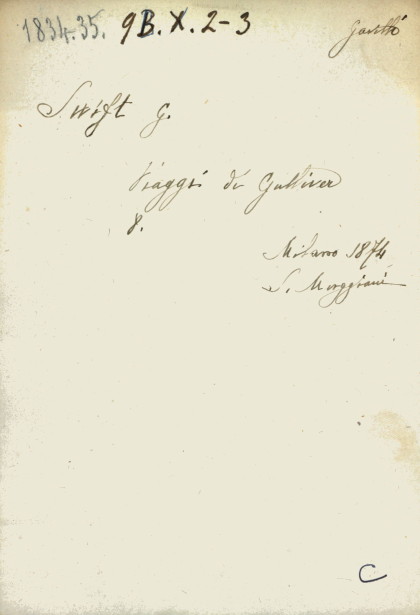 1834-35. 9B.X.2-3
Swift G.
Viaggi di Gulliver
8.
Milano 1874
C